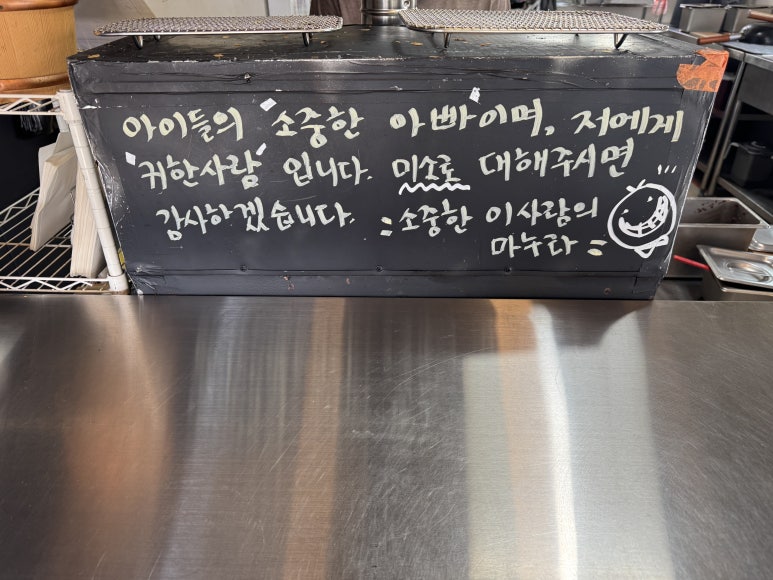 아이들의 '소중한 아빠'이며, 저에게
"귀한사람" 입니다. 미소로 대해주시면
감사하겠습니다. =소중한 이사람의
마누라=